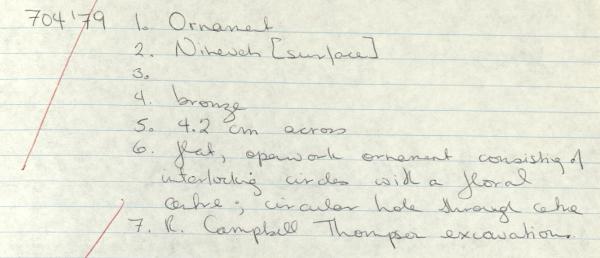 704'79 1. Ornament
2. Nineveh [surface]
3.
4. bronze
5. 4.2 cm across
6. flat, openwork ornament consisting of
interlocking circles with a floral
centre; circular hole through centre
7. R. Campbell Thompson excavations.